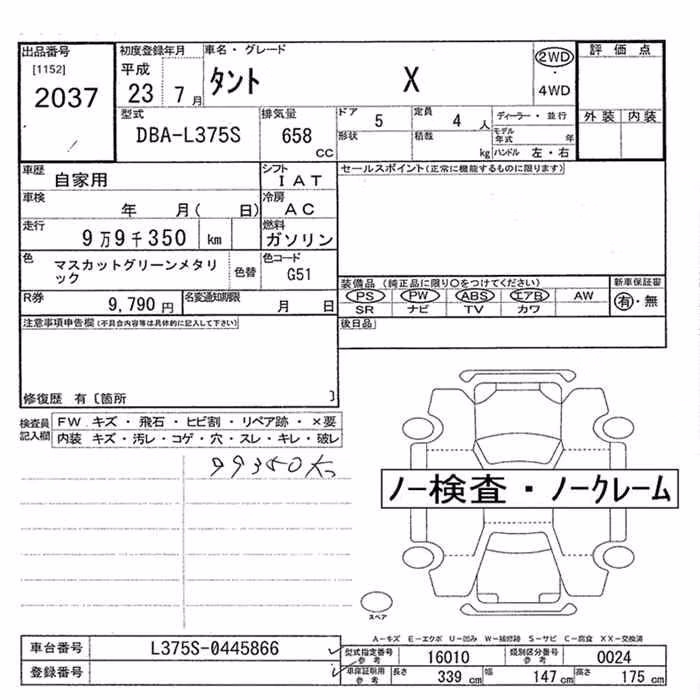 出品番号
[1152]
2037
初度登録年月
平成
23 7月
車名・グレード
タント X
2WD
・
4WD
評価点
外装 内装
型式
DBA-L375S
排気量
658
CC
ドア
5
形状
定員
4 人
積載
kg
ディーラー・並行
モデル年式 年
ハンドル 左・右
車歴
自家用
シフト
IAT
車検
年 月( 日)
冷房
AC
走行
9万9千350 km
燃料
ガソリン
色
マスカットグリーンメタリ
ック
色替
色コード
G51
R券
9,790 円
名変通知期限
月 日
セールスポイント(正常に機能するものに限ります)
装備品 (純正品に限り○をつけてください)
PS PW ABS エアB AW
SR ナビ TV カワ
新車保証書
有・無
後日品
注意事項申告欄(不具合内容等は具体的に記入して下さい)
修復歴 有〔箇所 〕
検査員
記入欄
FW.キズ・飛石・ヒビ割・リペア跡・×要
内装 キズ・汚レ・コゲ・穴・スレ・キレ・破レ
99350K
ノー検査・ノークレーム
スペア
A-キズ E-エクボ U-凹み W-補修跡 S-サビ C-腐食 XX-交換済
車台番号
L375S-0445866
登録番号
型式指定番号
参考
16010
類別区分番号
参考
0024
車庫証明用
参考
長さ
339 cm
幅
147 cm
高さ
175 cm